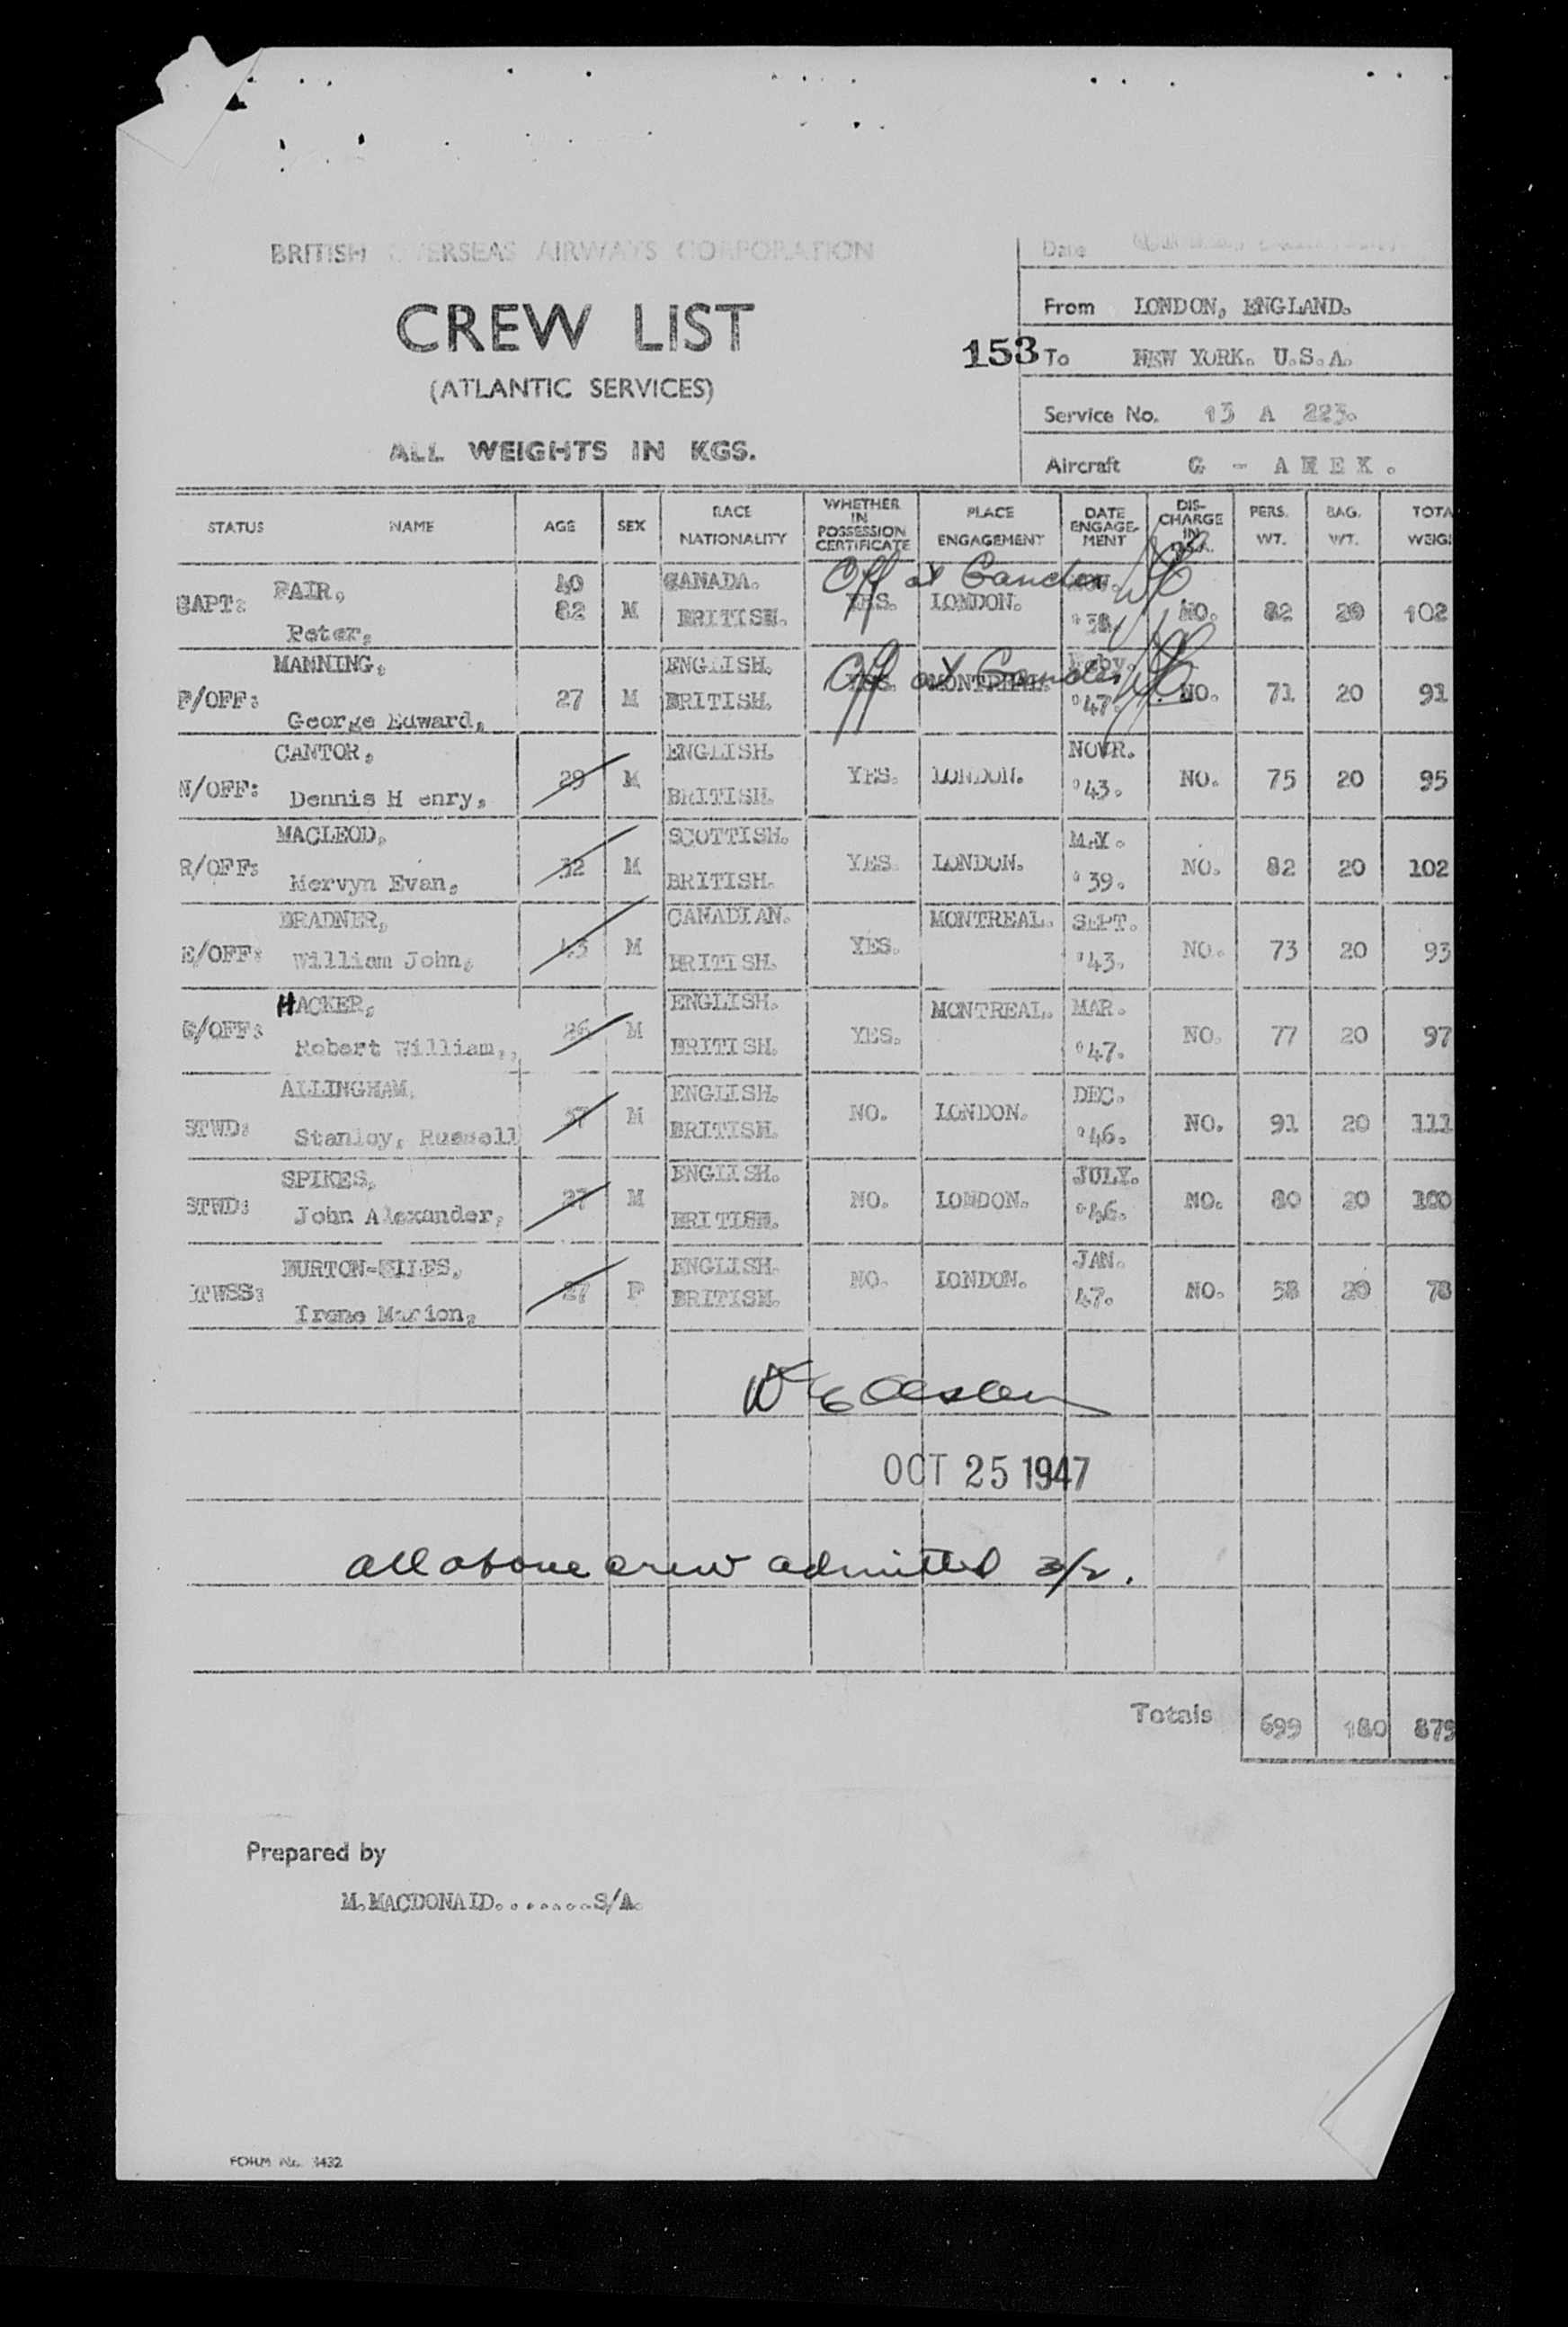 BRITISH OVERSEAS AIRWAYS CORPORATION
Date
CREW LIST
From LONDON, ENGLAND.
153
To NEW YORK. U.S.A.
(ATLANTIC SERVICES)
Service No. 13 A 223.
ALL WEIGHTS IN KGS.
Aircraft G - A H E K .
STATUS NAME AGE SEX RACE NATIONALITY WHETHER IN POSSESSION CERTIFICATE PLACE ENGAGEMENT DATE ENGAGE-MENT DIS-CHARGE IN U.S.A. PERS. WT. BAG. WT. TOTA WEIG
Off at Gander
CAPT: FAIR, 40 CANADA. NOV.
Peter, 82 M BRITISH. YES. LONDON. '38. NO. 82 20 102
Off at Gander
MANNING, ENGLISH. Feby.
F/OFF: George Edward, 27 M BRITISH. YES. MONTREAL. '47. NO. 71 20 91
CANTOR, ENGLISH. NOVR.
N/OFF: Dennis H enry, 29 M BRITISH. YES. LONDON. '43. NO. 75 20 95
MACLEOD, SCOTTISH. MAY.
R/OFF: Mervyn Evan, 32 M BRITISH. YES. LONDON. '39. NO. 82 20 102
BRADNER, CANADIAN. MONTREAL. SEPT.
E/OFF: William John, 43 M BRITISH. YES. '43. NO. 73 20 93
HACKER, ENGLISH. MONTREAL. MAR.
E/OFF: Robert William,, 26 M BRITISH. YES. '47. NO. 77 20 97
ALLINGHAM, ENGLISH. DEC.
STWD: Stanley, Russell M BRITISH. NO. LONDON. '46. NO. 91 20 111
SPIKES, ENGLISH. JULY.
STWD: John Alexander, 27 M BRITISH. NO. LONDON. '46. NO. 80 20 100
BURTON-GILES, ENGLISH. JAN.
TWSS: Irene Marion, 27 F BRITISH. NO. LONDON. 47. NO. 58 20 78
OCT 25 1947
all above crew admitted 3/2.
Totals 699 180 879
Prepared by
M.MACDONALD........S/A.
FORM No. 1432